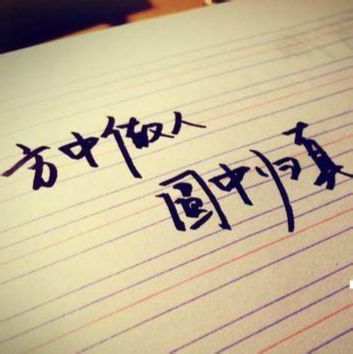 方中做人
圆中归真